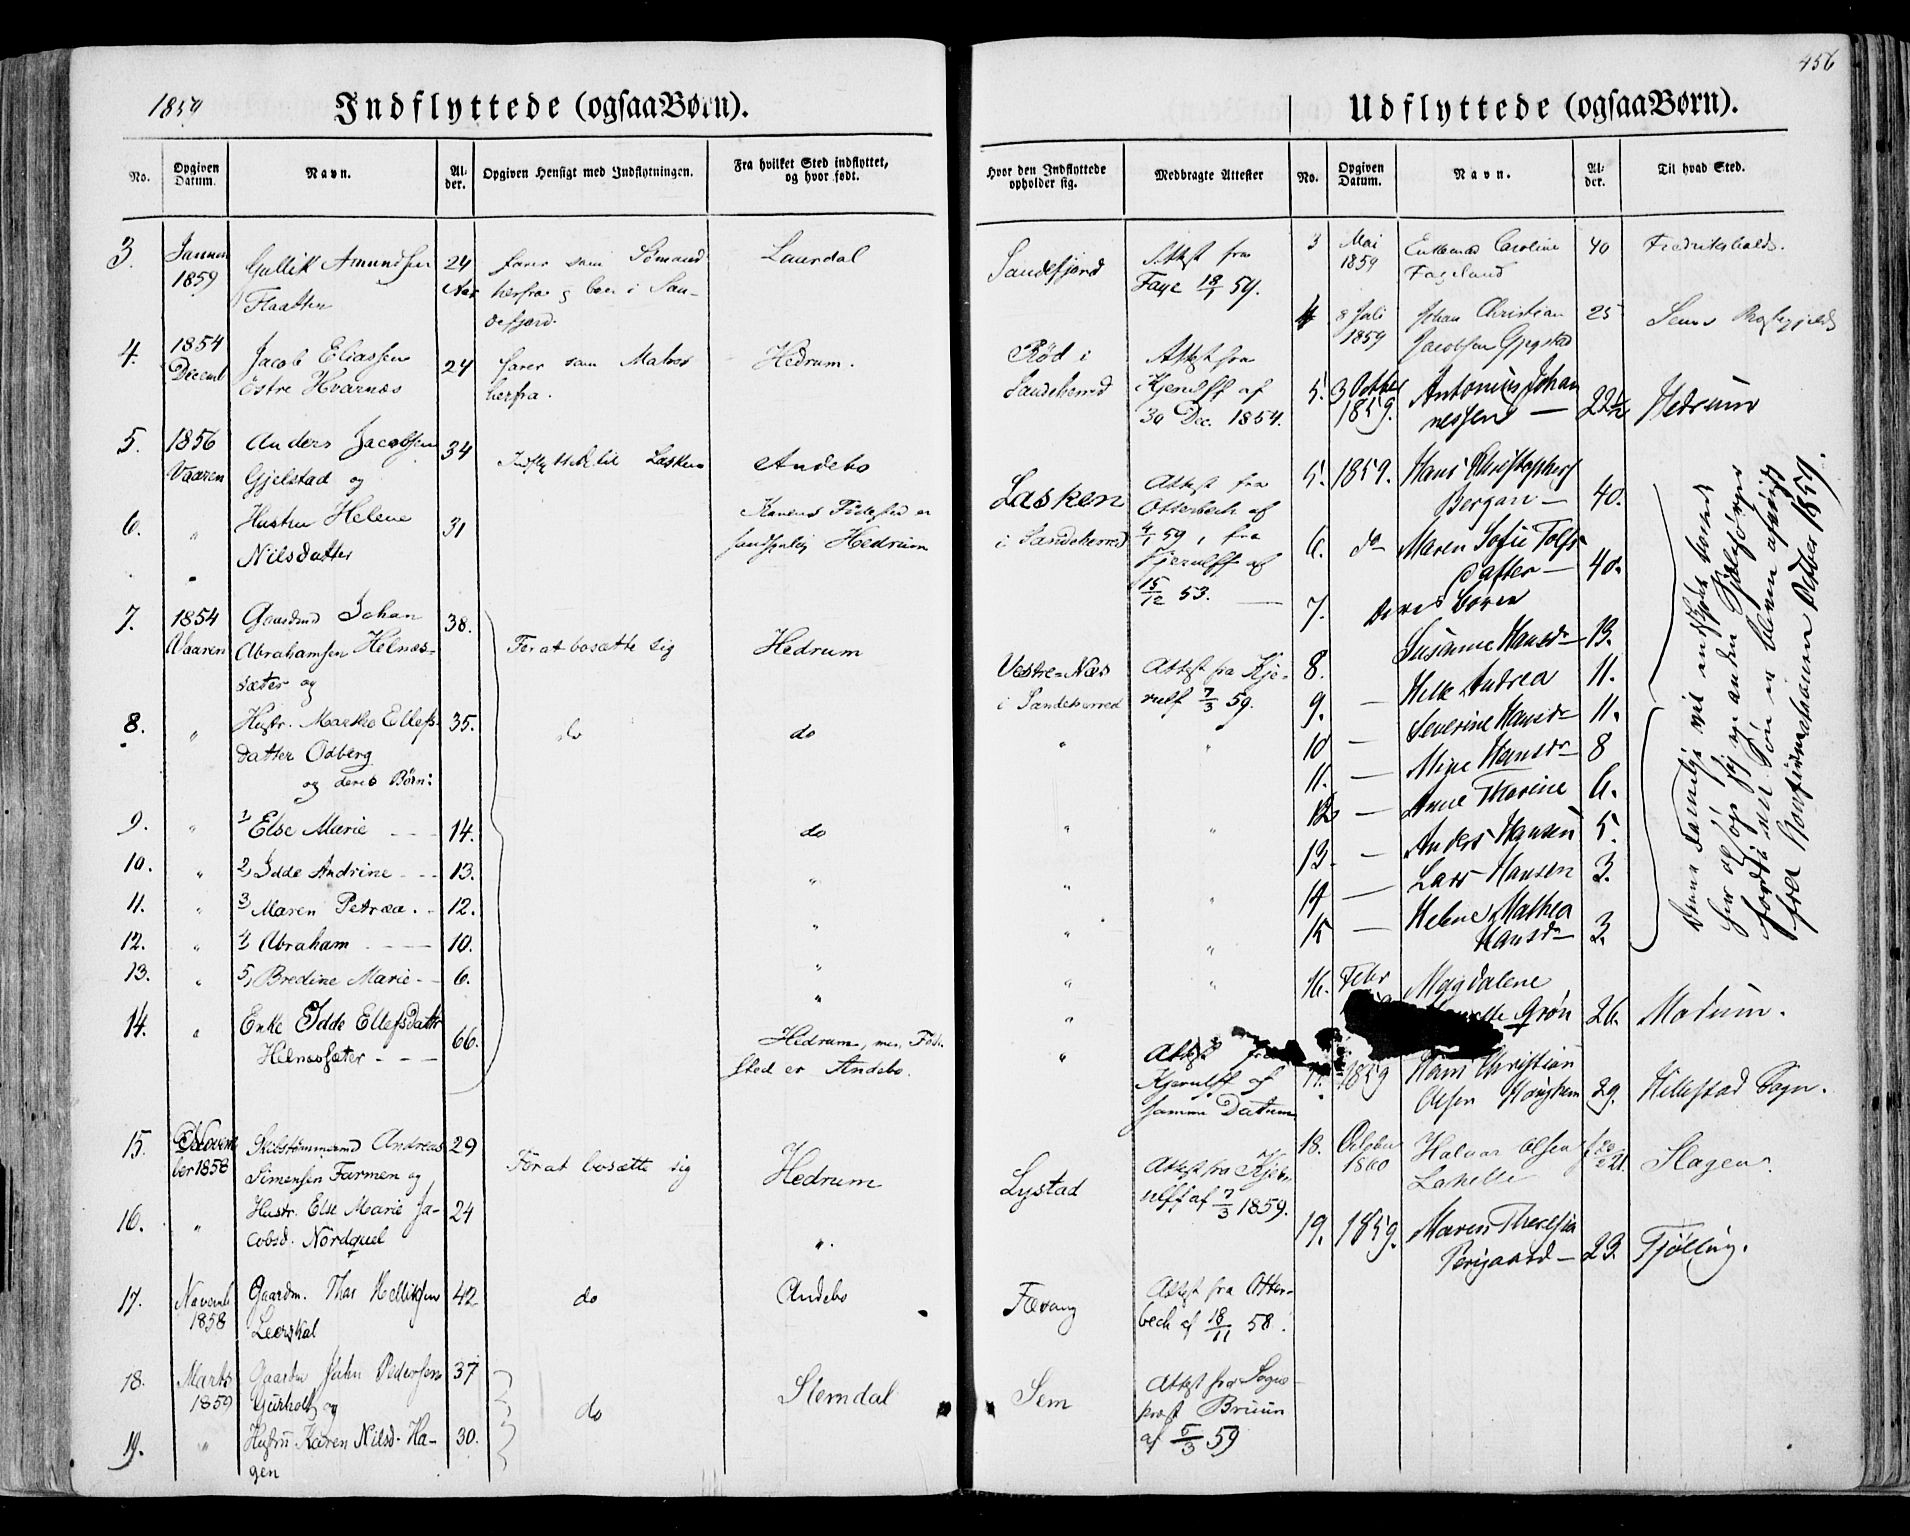 456
1859 Indflyttede (ogsaa Børn).
Udflyttede (ogsaa Børn).
No. Opgiven Datum. Navn. Alder. Opgiven Hensigt med Indflytningen. Fra hvilket Sted indflyttet, og hvor født.
Hvor den Indflyttede opholder sig. Medbragte Attester
No. Opgiven Datum. Navn. Alder. Til hvad Sted.
3. Januar 1859 Gullik Amundsen Flaatten 24 Aar farer som Sømand herfra og boer i Sandefjord. Laurdal Sandefjord Attest fra Faye 18/1 59.
4. 1854 Decemb Jacob Eliassen østre Hvarnæs 24 farer som Matros herfra. Hedrum. Rød i Sandeherred Attest fra Kjerulff af 30 Dec. 1854.
5. 1856 Vaaren Anders Jacobsen Gjelstad og 34 Indflyttede til Lasken Andebo Lasken i Sandeherred Attest fra Otterbech af 4/1 59, fra Kjerulff af 15/12 53.
6. " Hustru Helene Nilsdatter 31 Konens Fødested er sandsynlig Hedrum
7. 1854 Vaaren Gaardmd Johan Abrahamsen Helnæssæter og 38. For at bosætte sig Hedrum Vestre-Næs i Sandeherred Attest fra Kjerulf 7/3 59.
8. " Hustr. Marthe Ellefsdatter Odberg og deres Børn: 35. do do " "
9. " 1 Else Marie 14. do " "
10. " 2, Idde Andrine 13. " " "
11. " 3 Maren Petrea. 12. " " "
12. " 4 Abraham 10. " " "
13. " 5, Bredine Marie 6. " "
14. " Enke Idde Ellefsdattr Helnæssæter 66. Hedrum, men Fødsted er Andebo. " Attest fra Kjerulff af samme Datum
15. November 1858 Skibstømmermd Andreas Simensen Farmen og 29 For at bosætte sig Hedrum Lystad Attest fra Kjerulff af 7/3 1859.
16. " Hustr. Else Marie Jacobsd. Nordquel 24 "
17. Novemb 1858 Gaardm. Thor Kelliksen Leerskal 42 do Andebo Fevang Attest fra Otterbech af 18/11 58.
18. Marts 1859 Gaardm John Pedersen Gurholt og 37 do Slemdal Sem Attest fra Sogneprost Bruun af 5/3 59
19. " Hustru Karen Nilsd. Hagen 30.
3 Mai 1859 Enkemd Caroline Fageland 40 Fredrikshald.
4 8 Juli 1859 Johan Christian Jacobsen Gjegstad 25 Sems Præstegjeld
5. 3 Octbr 1859. Antonius Johannessen 22½ Hedrum
5. 1859. Hans Christophers Bergan 40.
6. do Maren Sofie Tolfsdatter 40.
7. Deres Børn Susanne Hansdr 13.
8. Helle Andrea 11.
9. Severine Hansdr 11.
10 Mine Hansdr 8
11. Anne Thorine 6.
12 Anders Hansen 5.
13. Lars Hansen 3.
14 Helene Mathea
15 Hansdr 3.
Denne Familje
her og
fordi
fra Confirmationen Octber 1859.
16. Febr Magdalene Grøn 26. Modum.
17. 1859 Hans Christian Olsen 29. Hillestad Sogn.
18. October 1860 Halvor Olsen 21. Slagen.
19. 1859. Maren Theresia 23. Tjølling.